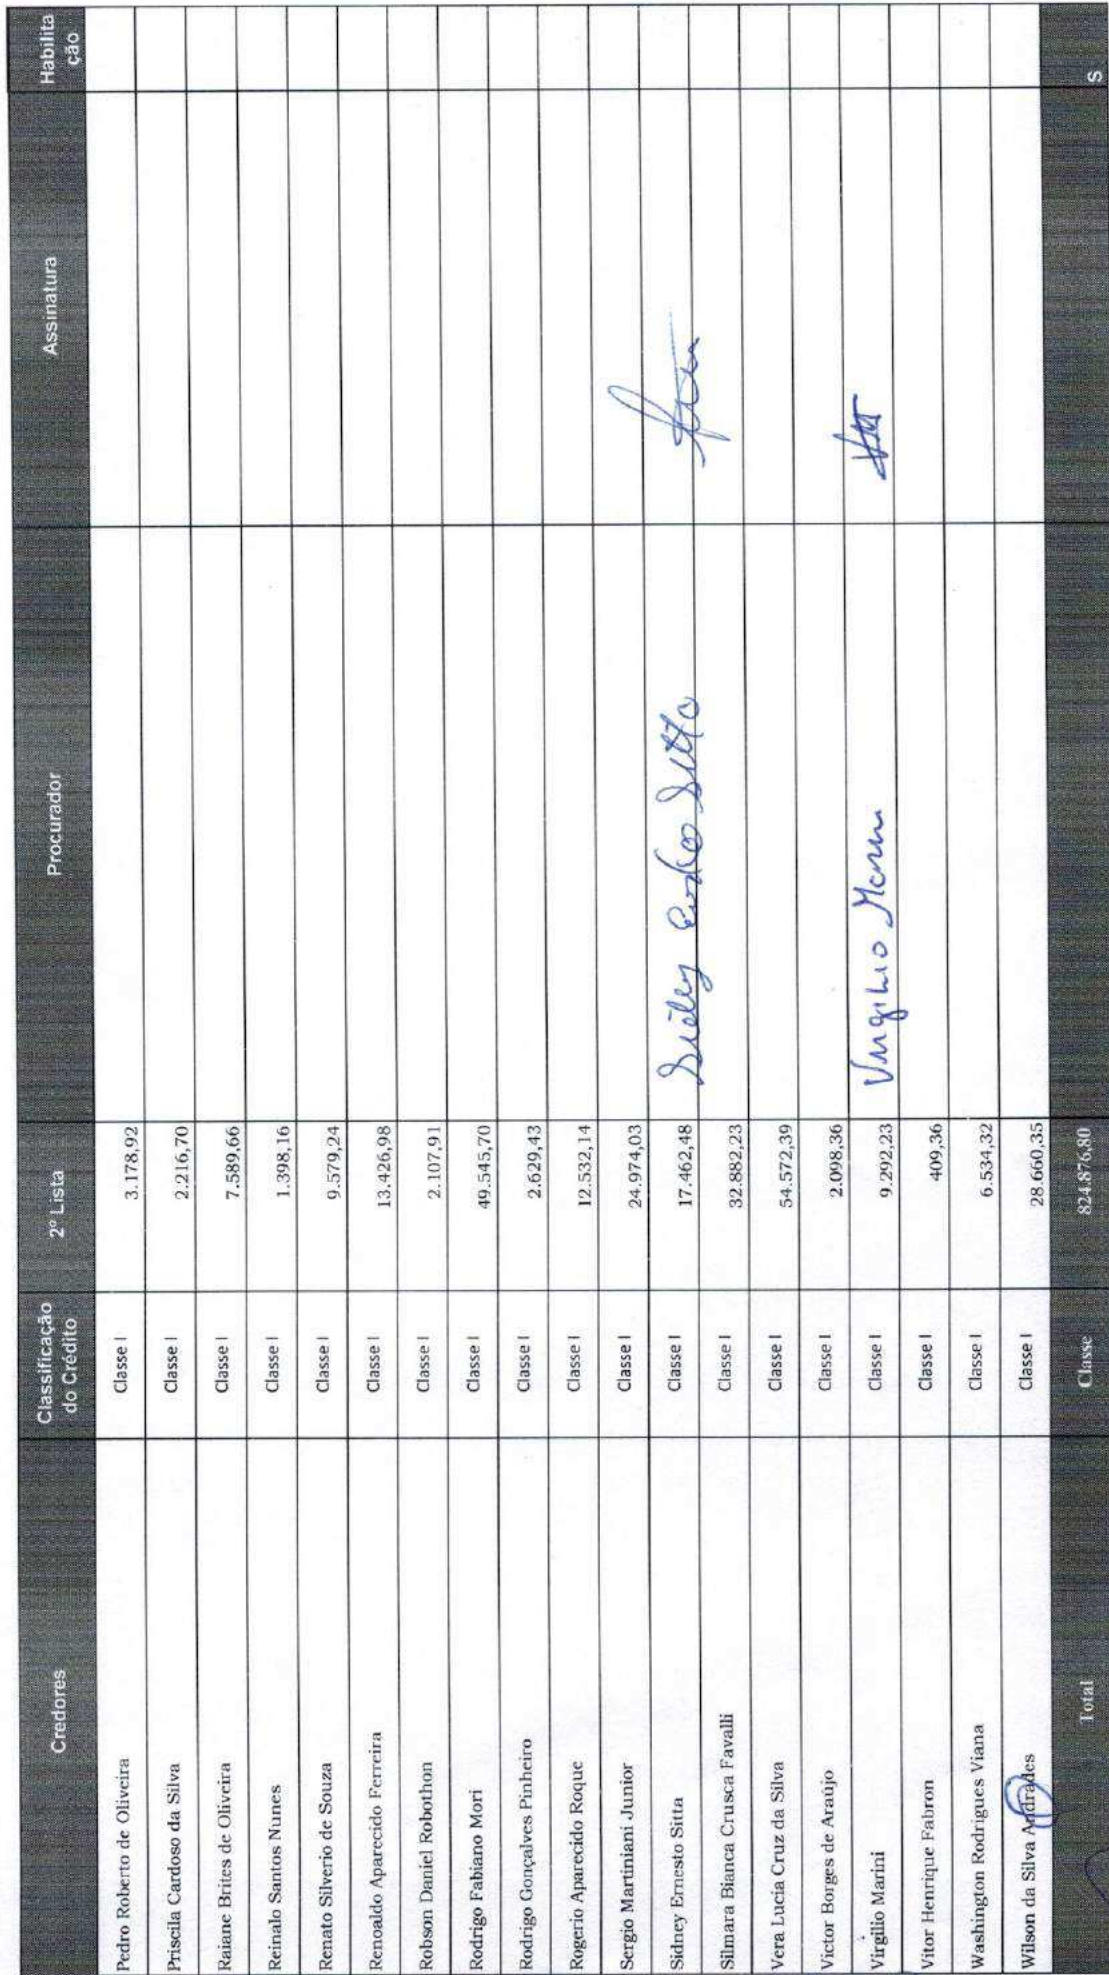 Credores Classificação do Crédito 2º Lista Procurador Assinatura Habilita ção
Pedro Roberto de Oliveira Classe I 3.178,92
Priscila Cardoso da Silva Classe I 2.216,70
Raiane Brites de Oliveira Classe I 7.589,66
Reinalo Santos Nunes Classe I 1.398,16
Renato Silverio de Souza Classe I 9.579,24
Renoaldo Aparecido Ferreira Classe I 13.426,98
Robson Daniel Robothon Classe I 2.107,91
Rodrigo Fabiano Mori Classe I 49.545,70
Rodrigo Gonçalves Pinheiro Classe I 2.629,43
Rogerio Aparecido Roque Classe I 12.532,14
Sergio Martiniani Junior Classe I 24.974,03
Sidney Ernesto Sitta Classe I 17.462,48
Silmara Bianca Crusca Favalli Classe I 32.882,23
Vera Lucia Cruz da Silva Classe I 54.572,39
Victor Borges de Araújo Classe I 2.098,36
Virgilio Marini Classe I 9.292,23 Virgilio
Vitor Henrique Fabron Classe I 409,36
Washington Rodrigues Viana Classe I 6.534,32
Wilson da Silva Andrades Classe I 28.660,35
Total Classe 824.876,80 S